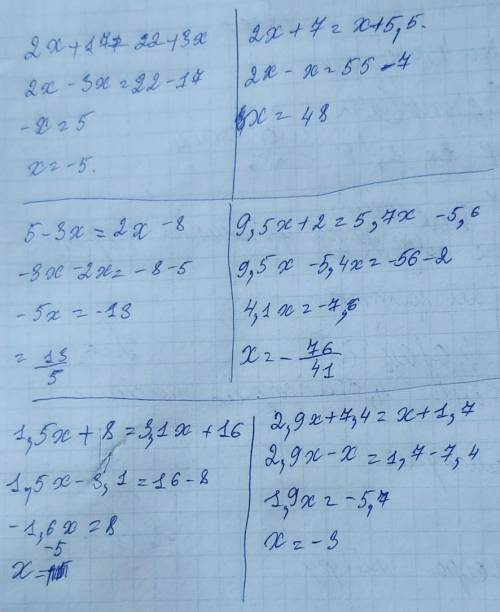 2x+17=22+3x
2x-3x=22-17
-x=5
x=-5.
2x+7=x+5,5.
2x-x=55-7
x=48
5-3x=2x-8
-3x-2x=-8-5
-5x=-13
=13/5
9,5x+2=5,7x-5,6
9,5x-5,4x=-56-2
4,1x=-7,6
x=-76/41
1,5x+8=3,1x+16
1,5x-3,1=16-8
-1,6x=8
x=-5
2,9x+7,4=x+1,7
2,9x-x=1,7-7,4
1,9x=-5,7
x=-3